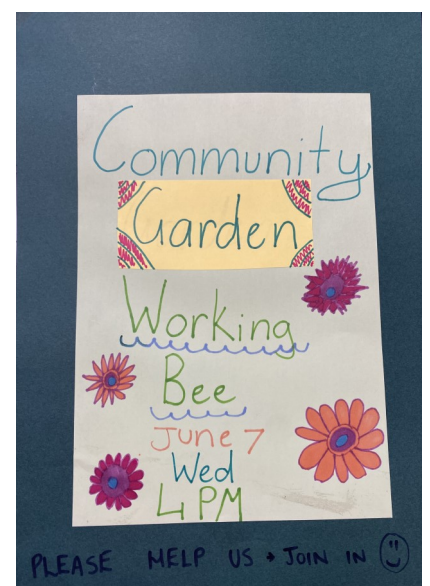 Community
Garden
Working
Bee
June 7
Wed
4 PM
PLEASE HELP US + JOIN IN